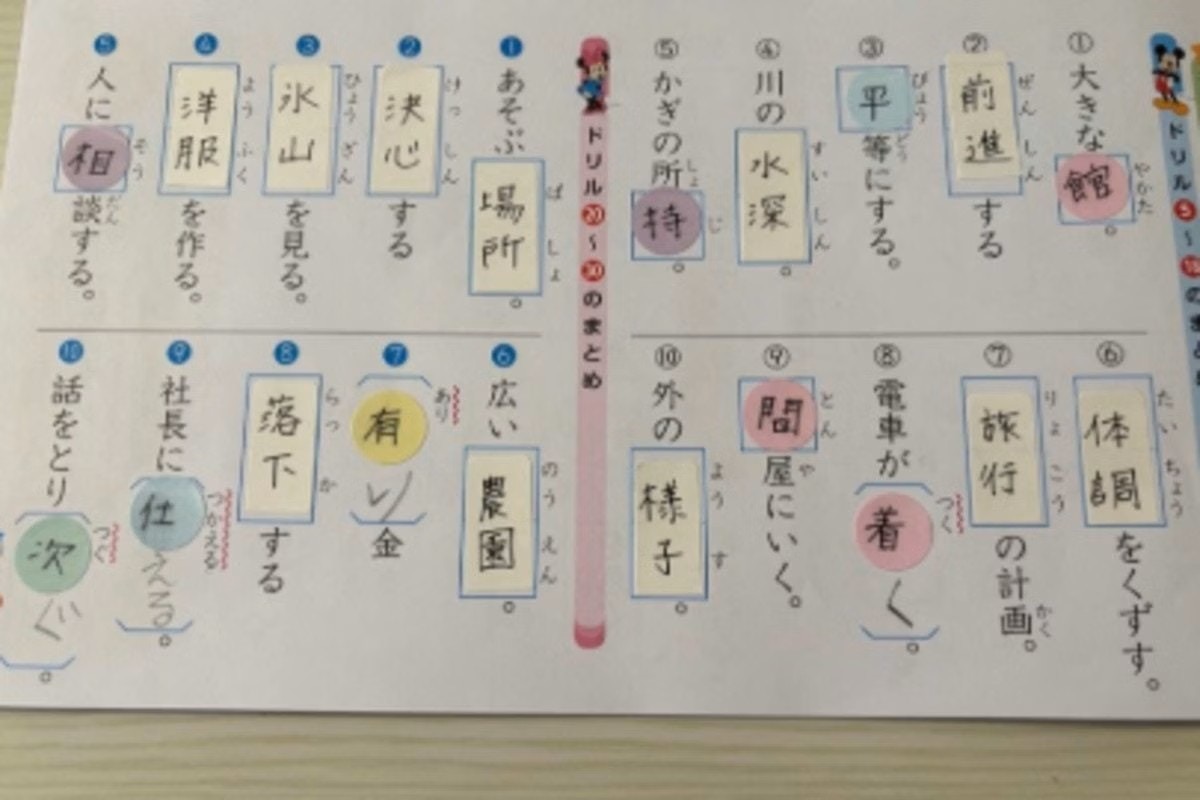 ドリル
① 大きな館。
やかた
② 前進する
ぜんしん
③ 平等にする。
びょうどう
④ 川の水深。
すいしん
⑤ かぎの所持。
しょじ
⑥ 体調をくずす。
たいちょう
⑦ 旅行の計画。
りょこう かく
⑧ 電車が着く。
つく
⑨ 問屋にいく。
とんや
⑩ 外の様子。
ようす
ドリル⑳〜㉚のまとめ
❶ あそぶ場所。
ばしょ
❷ 決心する
けっしん
❸ 氷山を見る。
ひょうざん
❹ 洋服を作る。
ようふく
❺ 人に相談する。
そうだん
❻ 広い農園。
のうえん
❼ 有り金
あり
❽ 落下する
らっか
❾ 社長に仕える。
つかえる
❿ 話をとり次ぐ。
つぐ